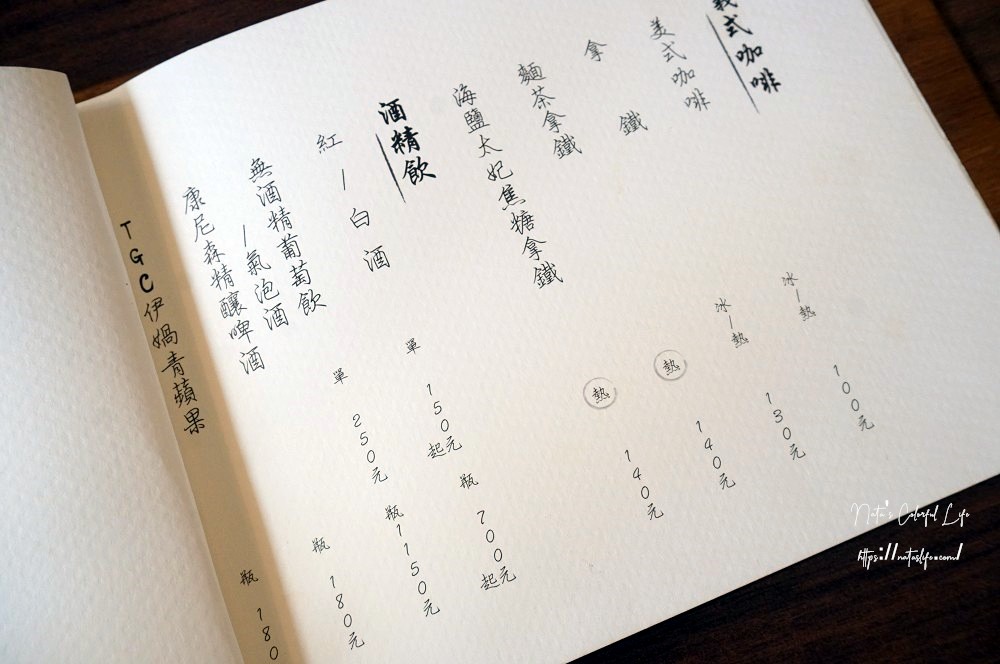 義式咖啡
美式咖啡 冰/熱 100元
拿鐵 冰/熱 130元
麵茶拿鐵 熱 140元
海鹽太妃焦糖拿鐵 熱 140元
酒精飲
紅/白酒 單 150元起 瓶 700元起
無酒精葡萄飲/氣泡酒 單 250元 瓶 1150元
康尼森精釀啤酒 瓶 180元
TGC伊媧青蘋果 瓶 180
Nata's Colorful Life
https://nataslife.com/